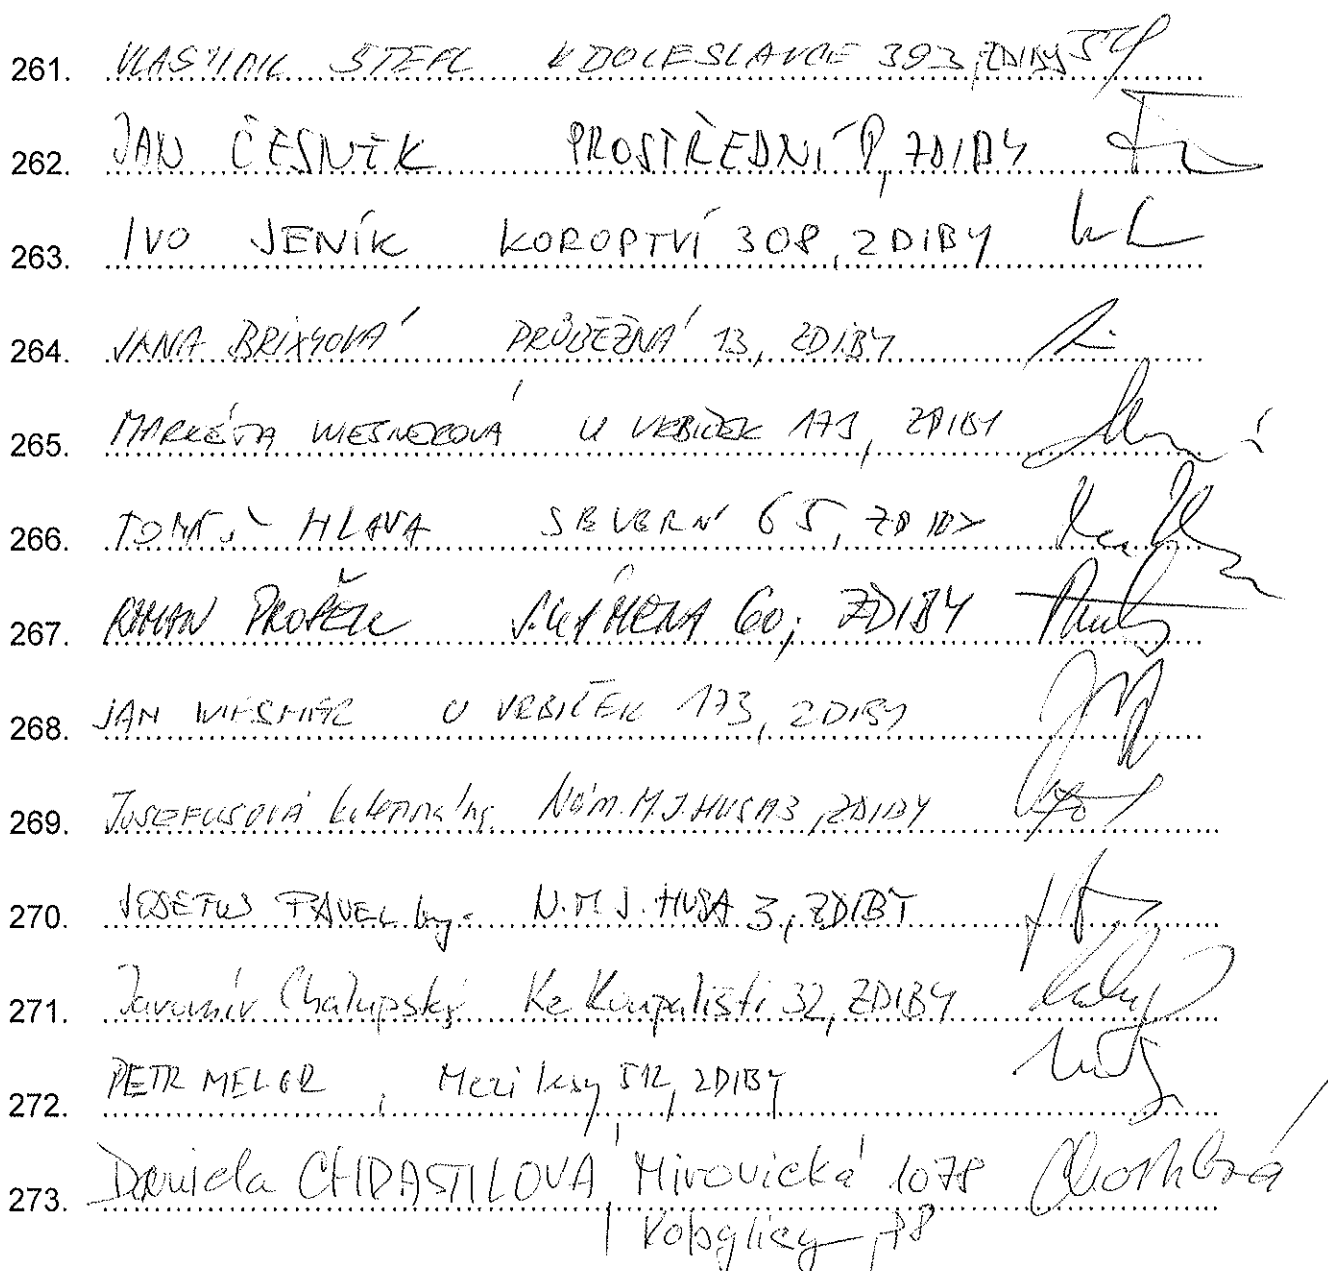 261. VLASTIMIL ŠTEFL K BOLESLAVCE 393, ZDIBY
262. JAN ČESNEK PROSTŘEDNÍ 9, ZDIBY
263. IVO JENÍK KOROPTVÍ 308, ZDIBY
264. JANA BRIXYOVÁ PRŮBĚŽNÁ 13, ZDIBY
265. MARKÉTA WIESNEROVÁ U VRBIČEK 173, ZDIBY
266. TOMÁŠ HLAVA SEVERNÍ 65, ZDIBY
267. ROMAN PROŠEK 60, ZDIBY
268. JAN WIESNER U VRBIČEK 173, ZDIBY
269. JOSEFUSOVÁ ing. NÁM. M.J. HUSA 3, ZDIBY
270. JOSEFUS PAVEL Ing. N.M.J. HUSA 3, ZDIBY
271. Jaromír Chalupský Ke Koupališti 32, ZDIBY
272. PETR MELGR, Mezi lesy 512, ZDIBY
273. Daniela CHRASTILOVÁ, Mirovická 1078
Kobylisy, P8